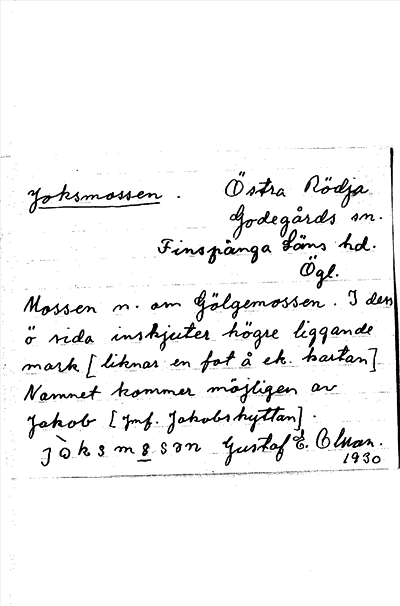 Joksmossen. Östra Rödja
Godegårds sn.
Finspånga Läns hd.
Ögl.
Mossen n. om Gölgemossen. I dess
ö sida inskjuter högre liggande
mark [liknar en fot å ek. kartan]
Namnet kommer möjligen av
Jakob [Jmf. Jakobshyttan].
Gustaf E. Olman.
1930